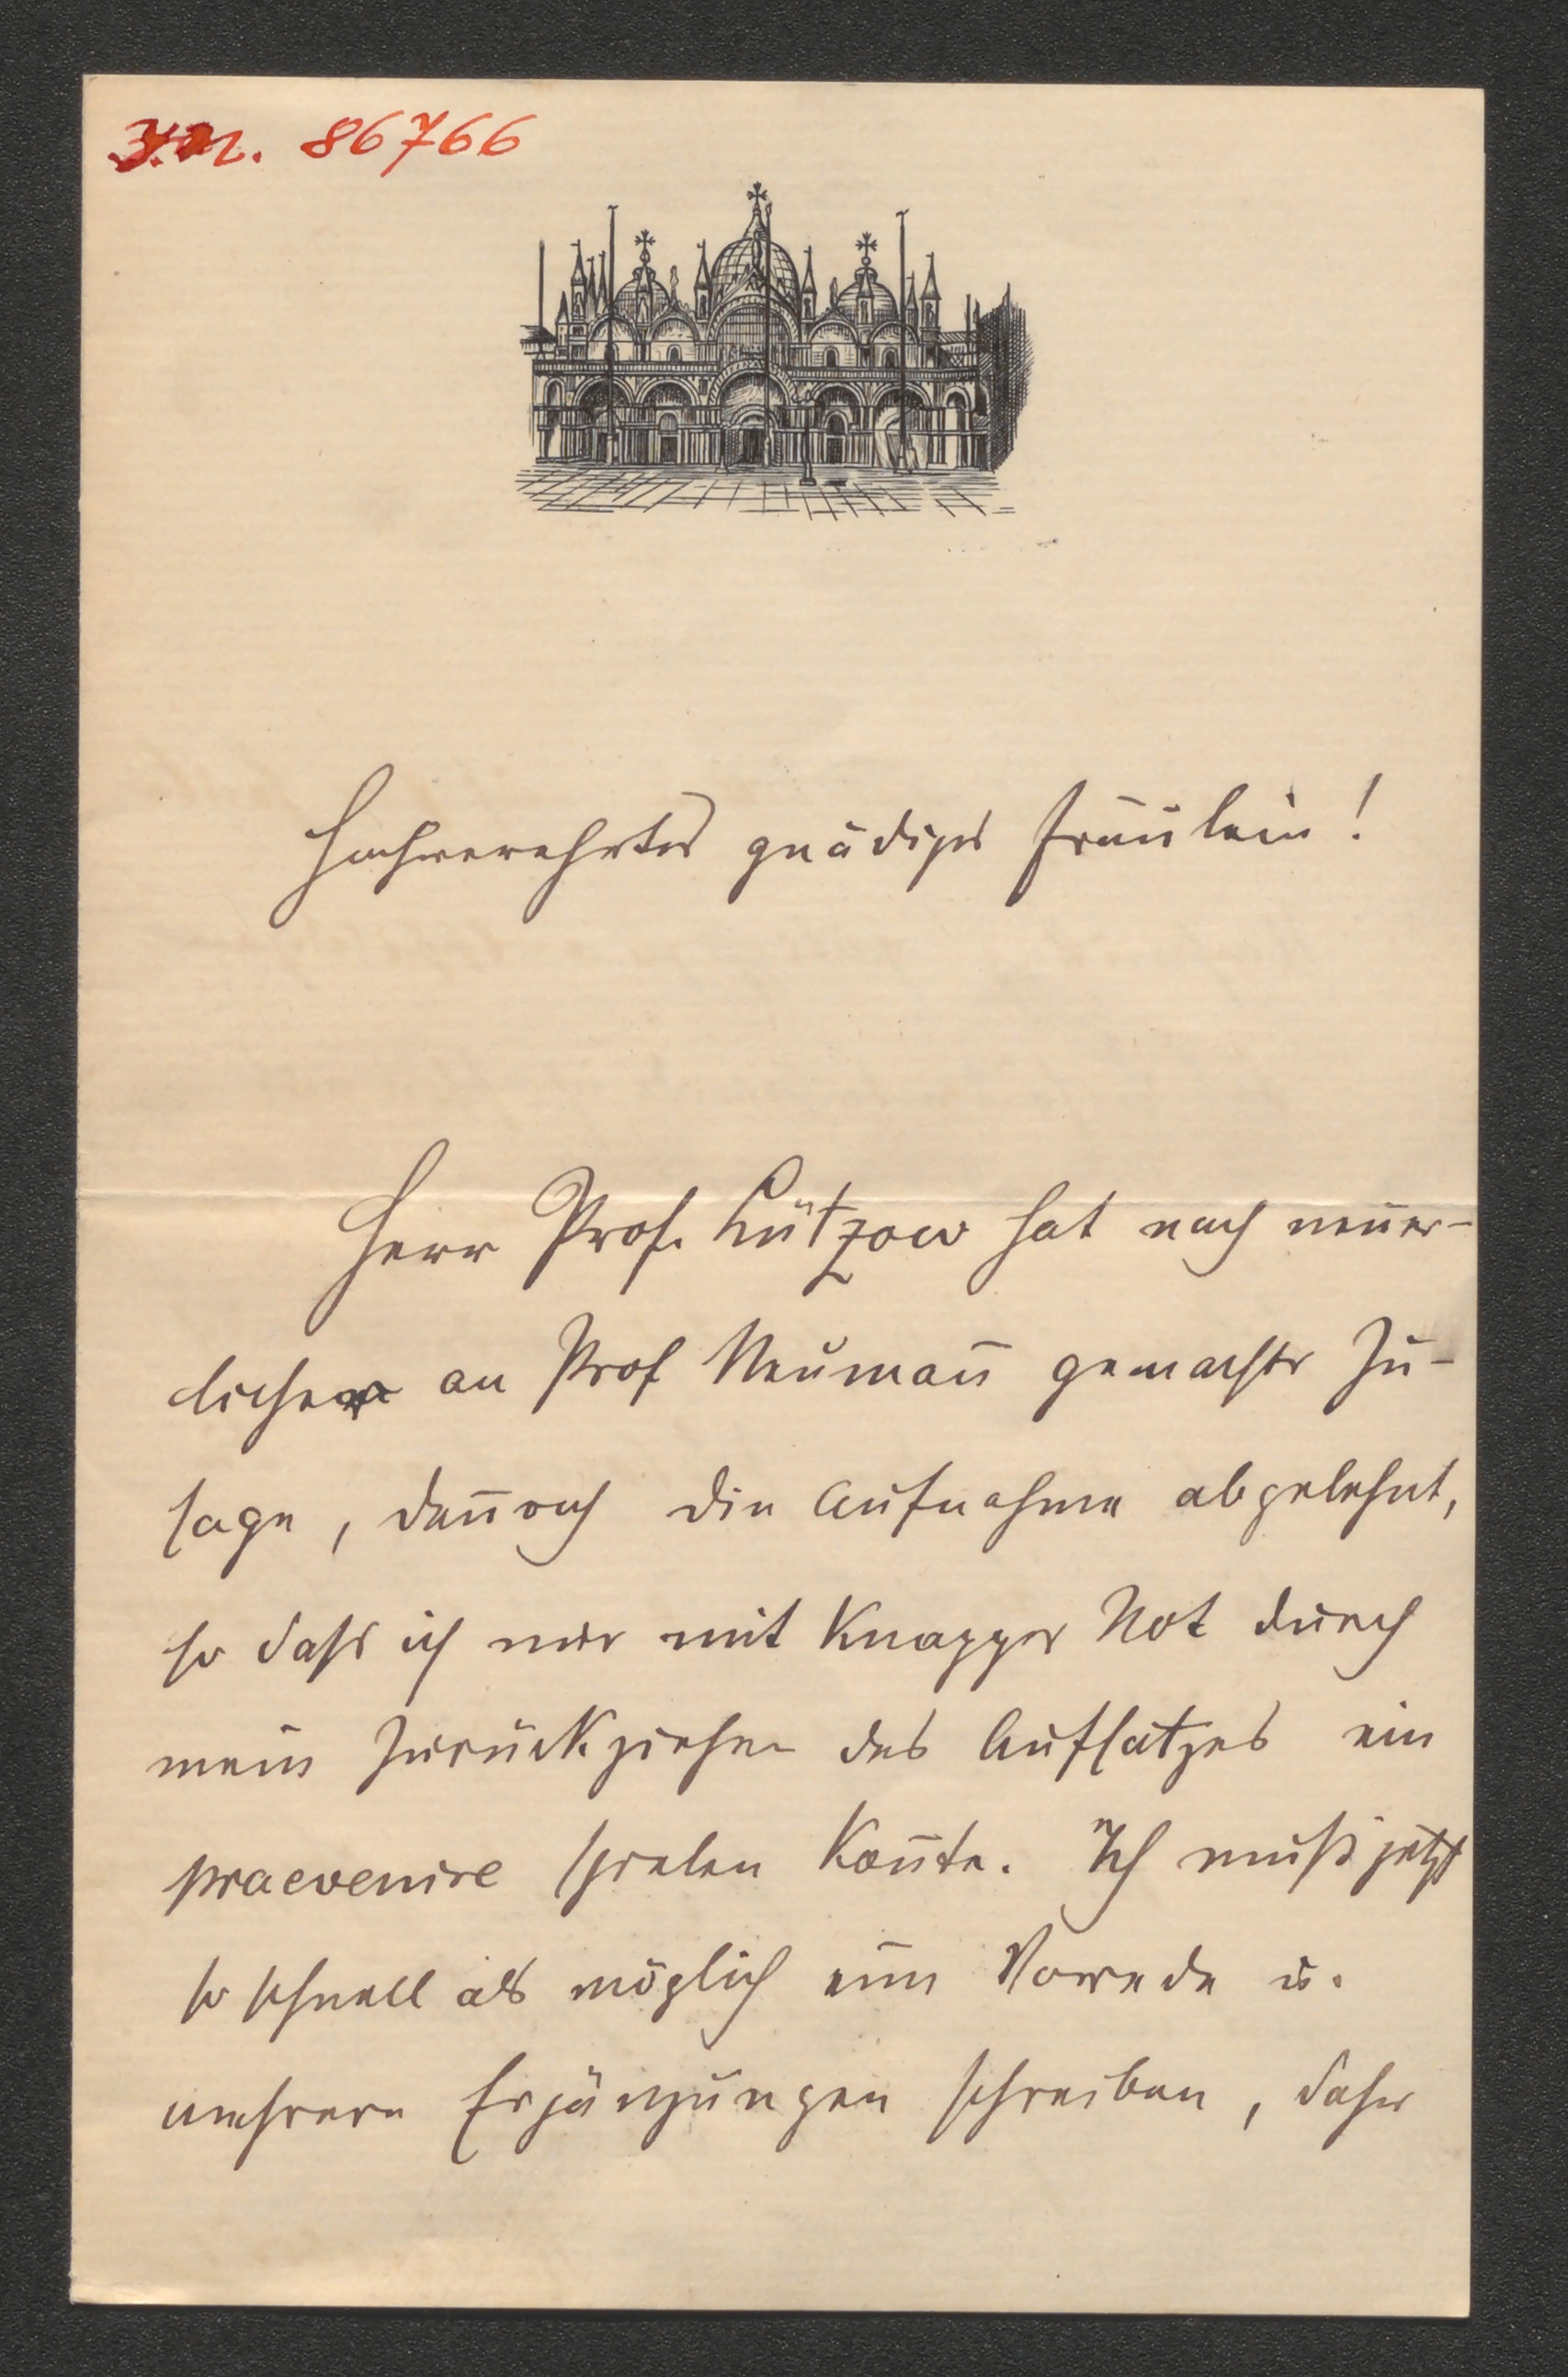 J.N. 86766
Hochverehrtes gnädiges Fräulein!
Herr Prof. Lützow hat nach neuer-
licher an Prof Neumañ gemachter Zu-
sage, deñoch die Aufnahme abgelehnt,
so daß ich nur mit Knapper Not durch
mein Zurückziehen des Aufsatzes ein
praevenire spielen Koñte. Ich muß jetzt
so schnell als möglich eine Vorrede u.
mehrere Ergänzungen schreiben, daher